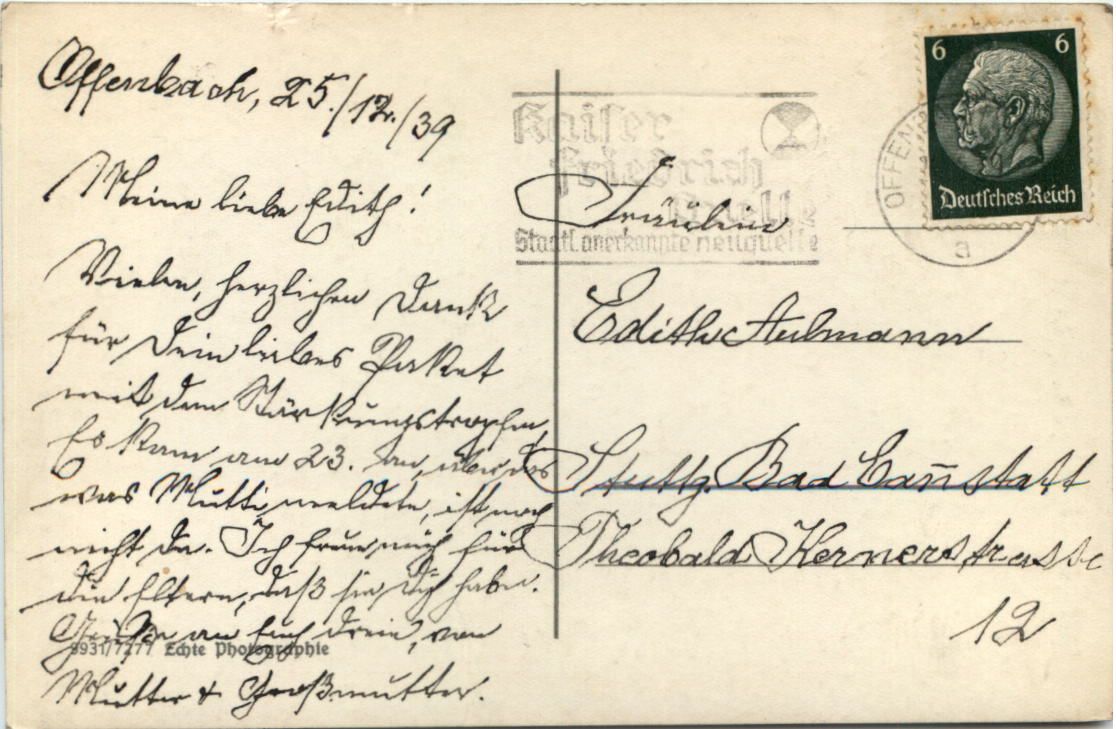 Offenbach, 25./12./39
Meine liebe Edith!
Vielen, herzlichen Dank
für Dein liebes Paket
mit den Stärkungstropfen,
Es kam am 23. an, aber das
was Mutti meldete, ist noch
nicht da. Ich freue mich für
die Eltern, daß sie Dich haben.
Grüße an Euch drein, von
Mutter & Großmutter.
9931/7277 Echte Photographie
Kaiser
Friedrich
Quelle
Staatl. anerkannte Heilquelle
OFFEN
a
6 6
Deutsches Reich
Fräulein
Edith Aulmann
Stuttg. Bad Cañstatt
Theobald Kernerstrasse
12